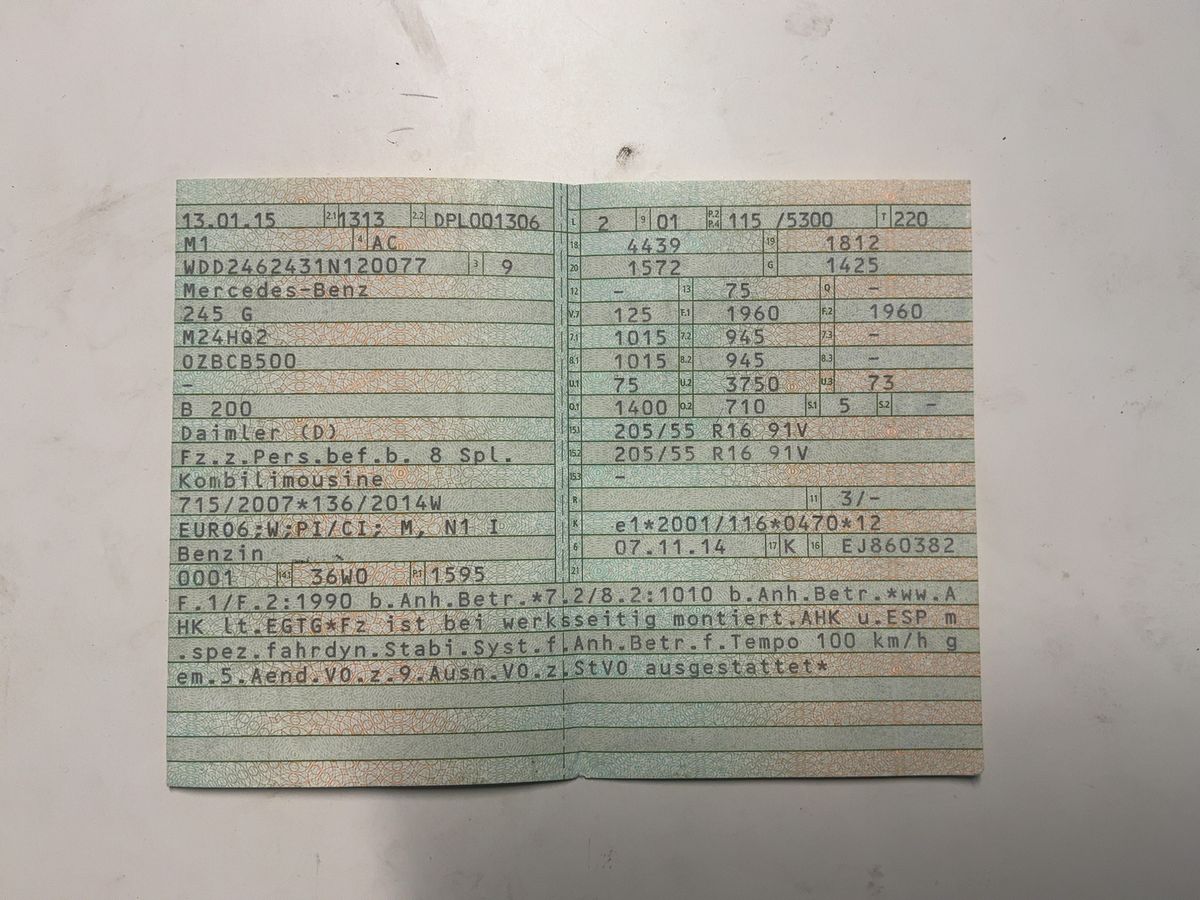 13.01.15 2.1 1313 2.2 DPL001306
M1 4 AC
WDD2462431N120077 3 9
Mercedes-Benz
245 G
M24HQ2
0ZBCB500
–
B 200
Daimler (D)
Fz.z.Pers.bef.b. 8 Spl.
Kombilimousine
715/2007*136/2014W
EURO6;W;PI/CI; M, N1 I
Benzin
0001 14.1 36W0 P.1 1595
L 2 9 01 P.2 P.4 115 /5300 T 220
18 4439 19 1812
20 1572 G 1425
12 – 13 75 Q –
V.7 125 F.1 1960 F.2 1960
7.1 1015 7.2 945 7.3 –
8.1 1015 8.2 945 8.3 –
U.1 75 U.2 3750 U.3 73
O.1 1400 O.2 710 S.1 5 S.2 –
15.1 205/55 R16 91V
15.2 205/55 R16 91V
15.3 –
R 11 3/-
K e1*2001/116*0470*12
6 07.11.14 17 K 16 EJ860382
21
F.1/F.2:1990 b.Anh.Betr.*7.2/8.2:1010 b.Anh.Betr.*ww.A
HK lt.EGTG*Fz ist bei werksseitig montiert.AHK u.ESP m
.spez.fahrdyn.Stabi.Syst.f.Anh.Betr.f.Tempo 100 km/h g
em.5.Aend.VO.z.9.Ausn.VO.z.StVO ausgestattet*